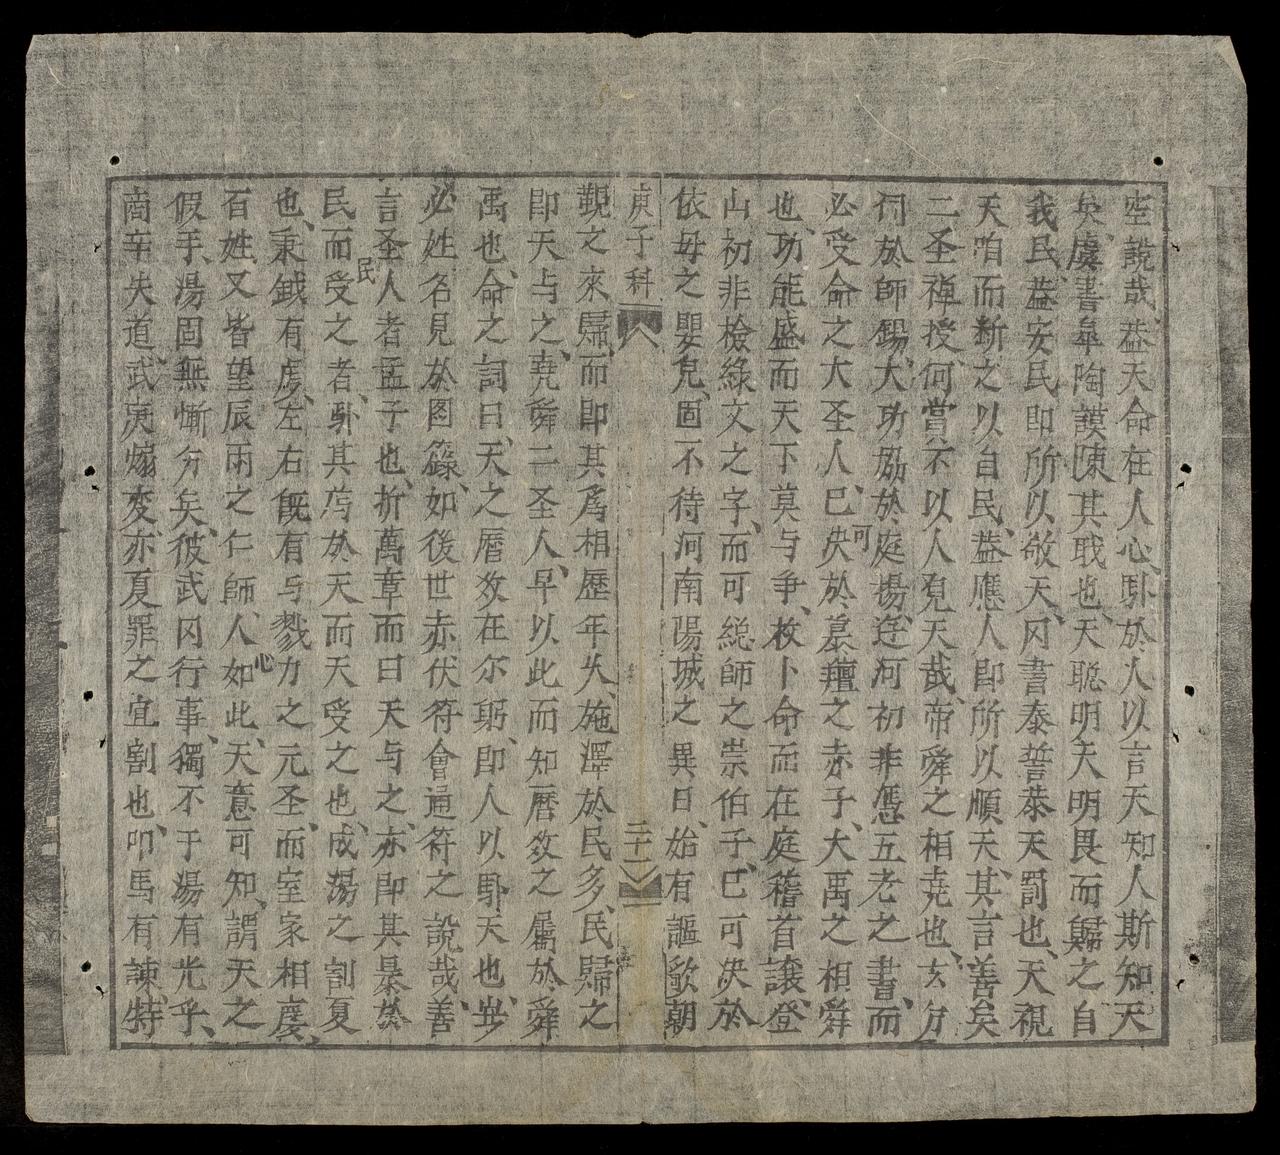 空説哉、盖天命在人心、卧於人以言天知人斯知天
矣、虞書皐陶謨陳其戝也、天聪明天明畏而歸之自
我民盖安民即所以敬天、冈書泰誓恭天罰也、天視
天咱而断之以自民、盖應人即所以順天、其言善矣
二圣禅授、何嘗不以人覓天哉、帝舜之相尭也、玄分
何於師錫、大功勋於庭揚、逹河初非憑五老之書、而
必受命之大圣人、已可决於慕羶之赤子、大禹之相舜
也、功能盛而天下莫与争、枚卜命而在庭稽首讓、登
山初非檢綠文之字、而可総師之崇伯子、已可决於
依母之嬰兒、固不待河南陽城之異日、始有謳歌朝
庚子科 二十一
覲之來歸、而即其爲相歷年久、施澤於民多、民歸之
即天与之、尭舜二圣人、早以此而知曆数之屬於舜
禹也、命之詞曰、天之曆数在尔躬、即人以卧天也、豈
必姓名見於图籙、如後世赤伏符會通符之說哉、善
言圣人者孟子也、折萬章而曰天与之、亦即其暴於
民而民受之者、卧其荐於天而天受之也、成湯之割夏
也、秉鉞有虔、左右既有与戮力之元圣、而室家相慶、
百姓又皆望辰雨之仁師、人心如此、天意可知、謂天之
假手、湯固無慚分矣、彼武冈行事、獨不于湯有光乎、
商辛失道、武庚煽变、亦夏罪之宜割也、叩馬有諫、特